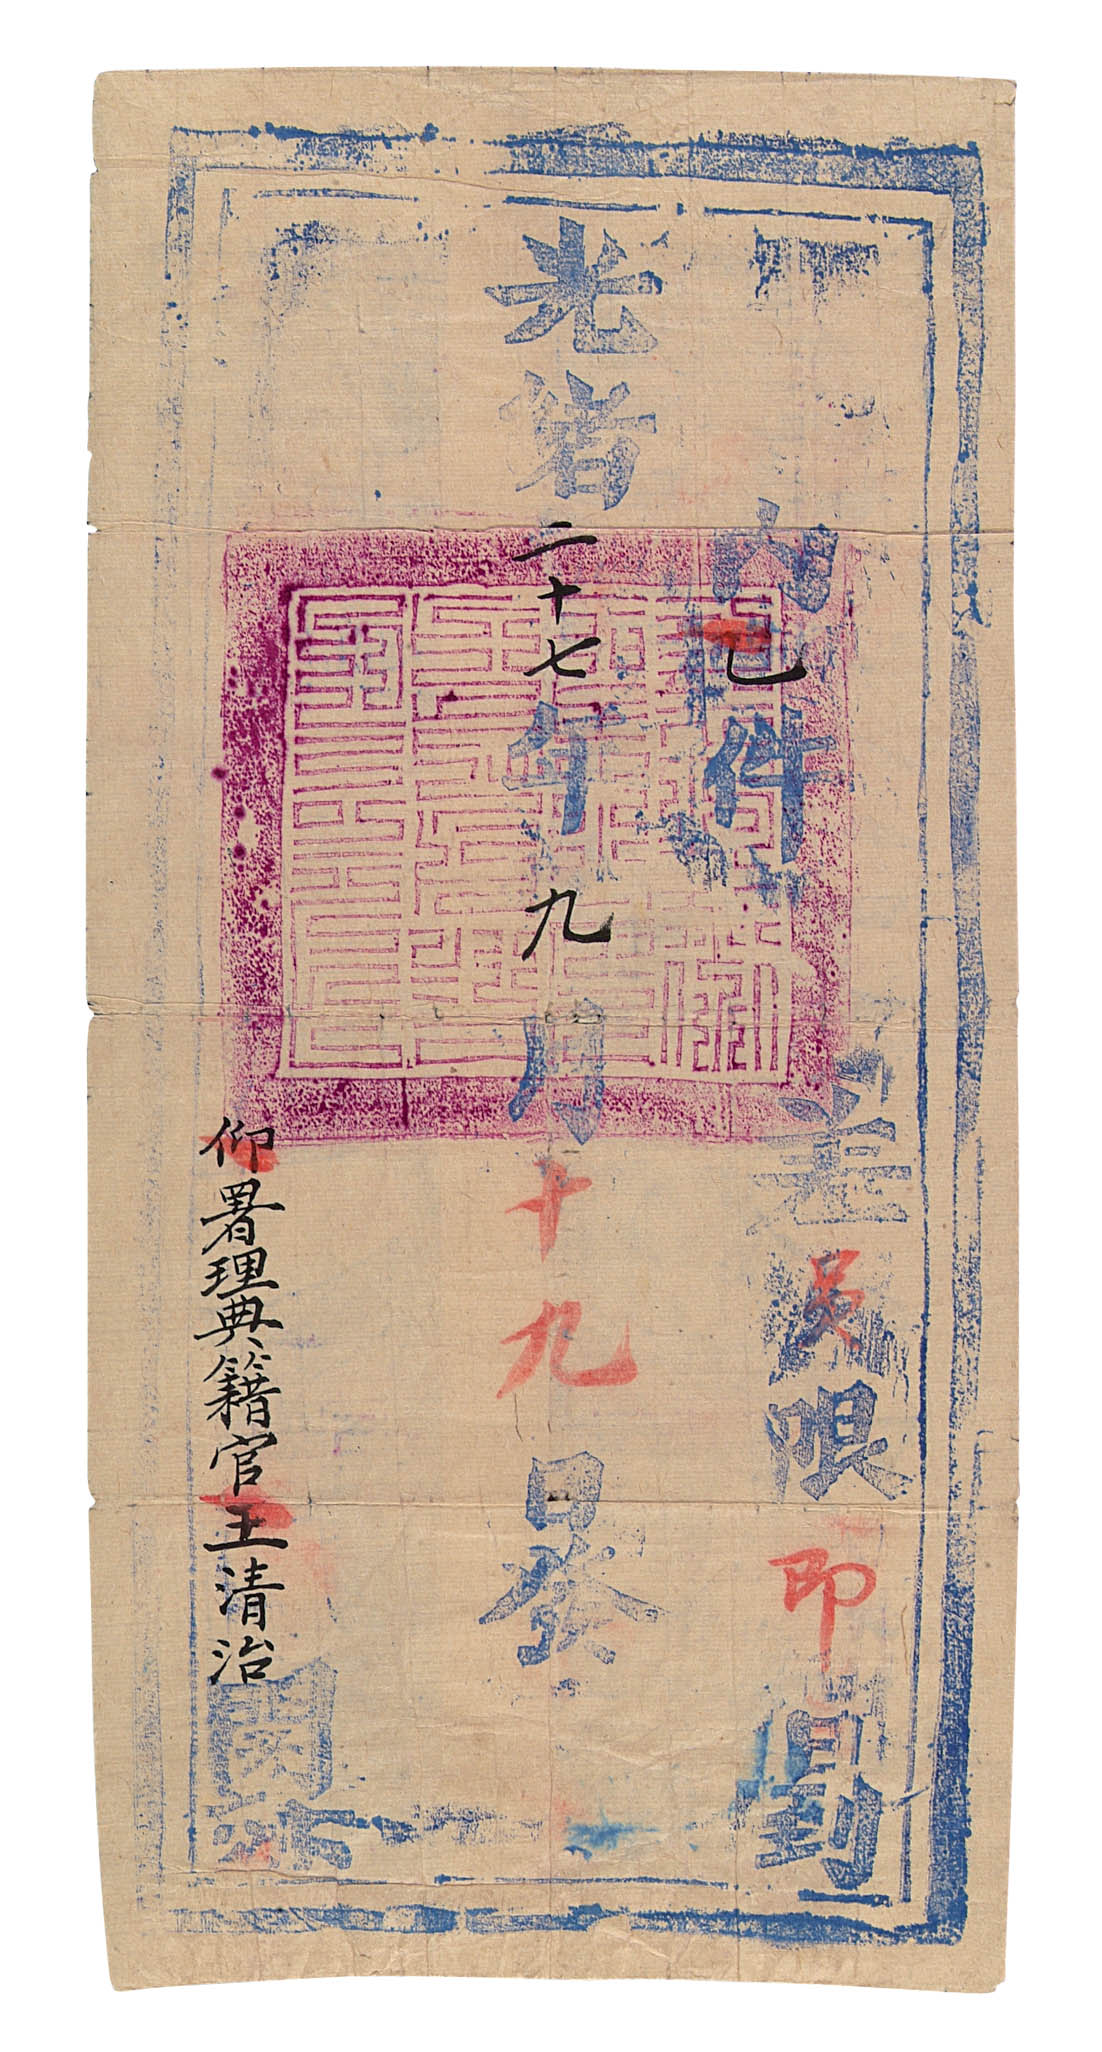 內乙件
差限即日到
光緒二十七年九月十九日發
仰署理典籍官王清治開拆